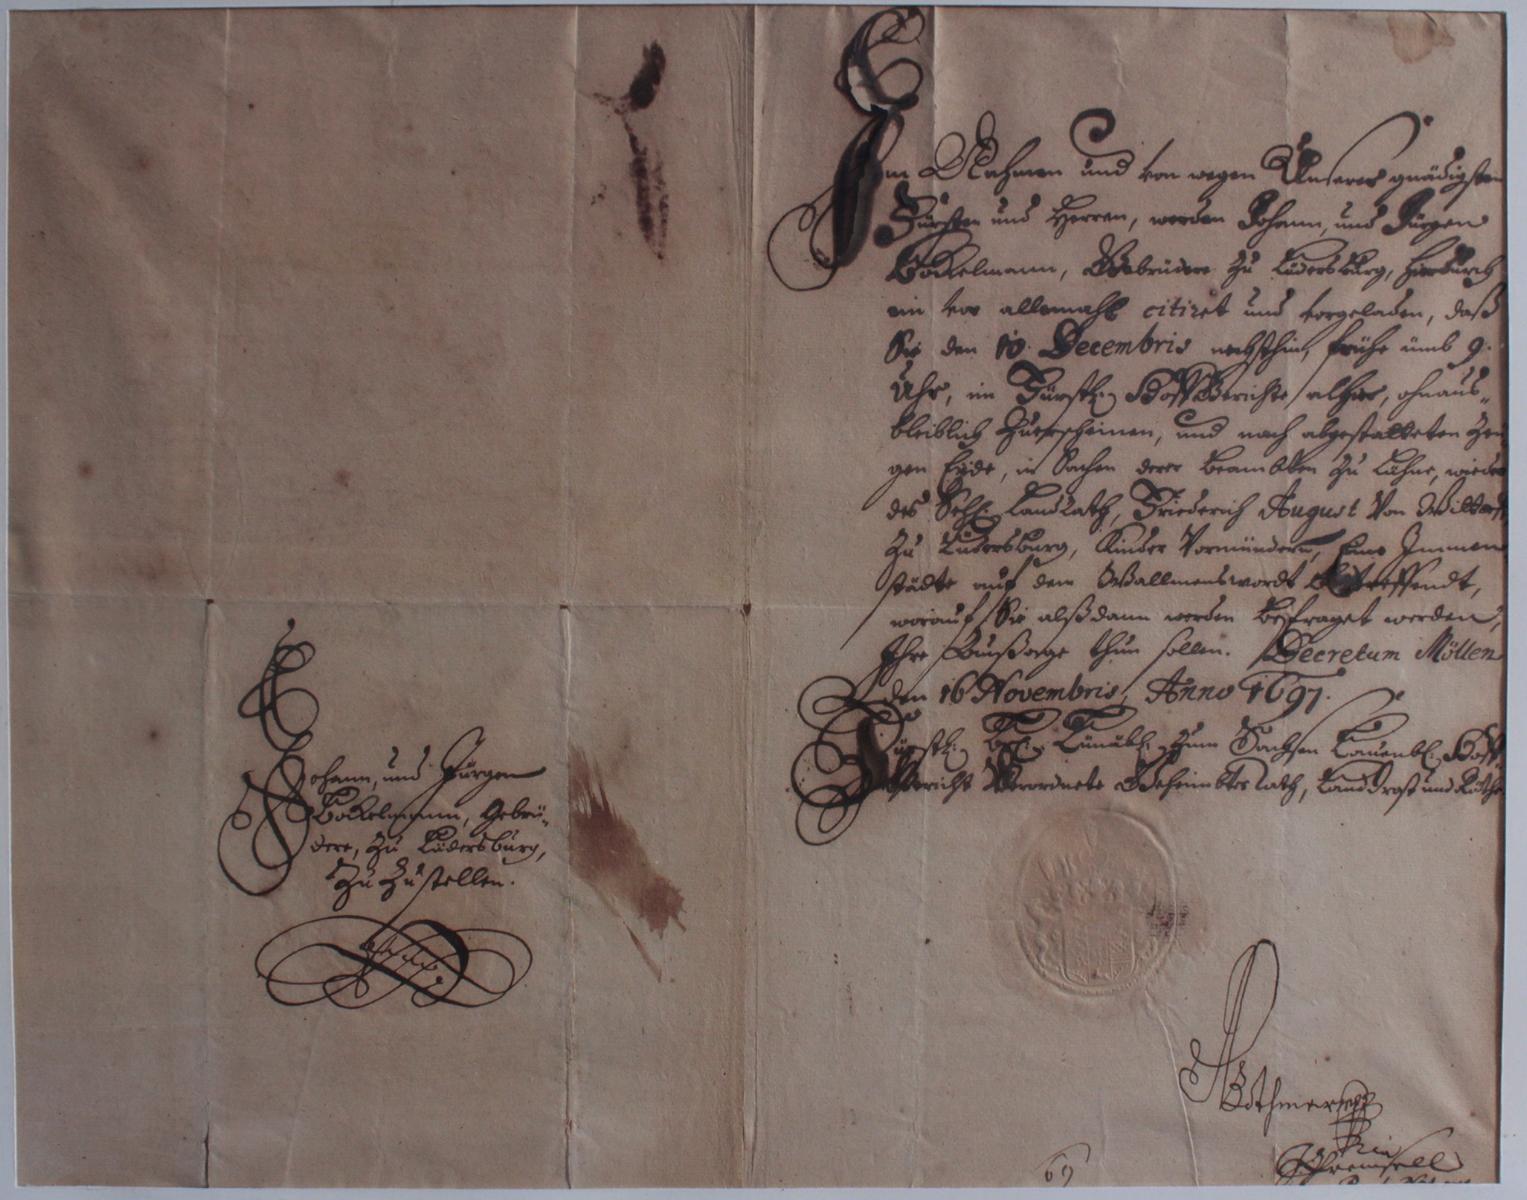 Im Nahmen und von wegen Unseres gnädigsten
Fürsten und Herren, werden Johann, und Jürgen
Bockelmann, Gebrüdere zu Lüdersburg, hierdurch
ein vor allemahl citiret und vorgeladen, daß
Sie den 10. Decembris nechsthin, frühe umb 9.
Uhr, im Fürstl. HoffGerichte alhier, ohnaus-
bleiblich zuerscheinen, und nach abgestatteten Zeu
gen Eyde, in Sachen derer Beambten zu Lühne, wieder
des Sehl. LandRath, Friederich August Von
zu Lüdersburg, Kinder Vormündern, Eine Immen
städte auf dem Wallmenswordt betreffendt,
worauf Sie alßdann werden befraget werden,
Ihre Außsage thun sollen. Decretum Möllen
den 16 Novembris, Anno 1697.
Fürstl. Lünäbl. zum Sachsen Lauenbl. Hoff
Gericht Verordnete Geheimbter Rath, LandDrost und Räthe
Johann, und Jürgen
Bockelmann, Gebrü-
dere, zu Lüdersburg,
zu zustellen.
Bothmer
69